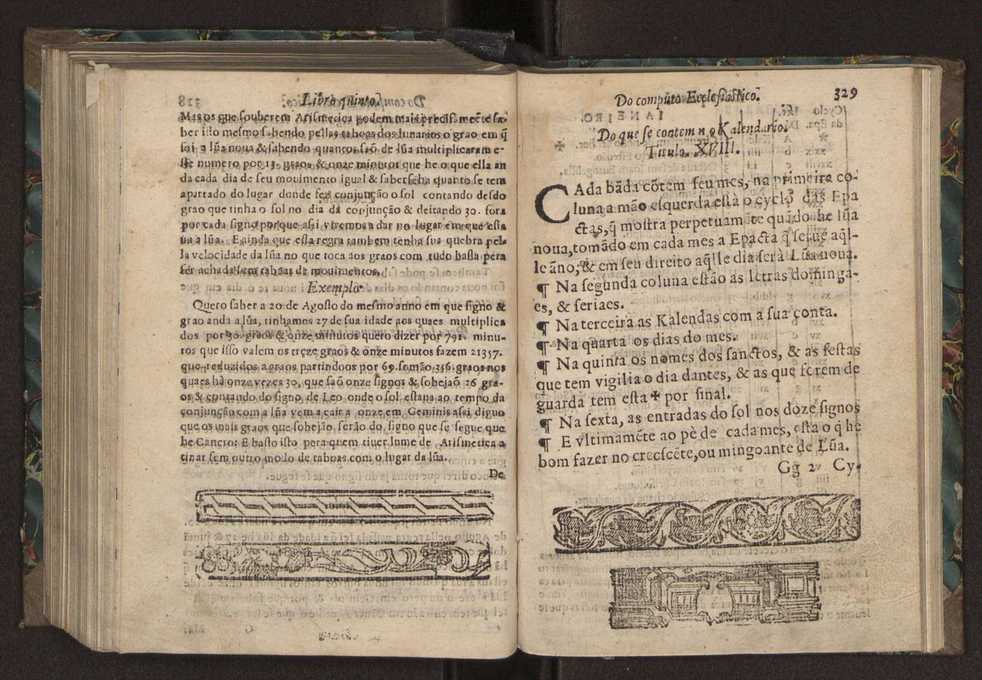 Libro quinto.
Mas os que souberem Arismetica podem mais precisamẽte sa-
ber isto mesmo sabendo pellas taboas dos lunarios o grao em q̃
foi a lũa noua & sabendo quantos saõ de lũa multiplicaram e-
ste numero por 13. graos & onze minutos que he o que ella an
da cada dia de seu mouimento igual & saberseha quanto se tem
apartado do lugar donde fez conjunção o sol contando desdo
grao que tinha o sol no dia da conjunção & deitando 30. fora
por cada signo porque assi viremos a dar no lugar em que esti
ua a lũa. E ainda que esta regra tambem tenha sua quebra pel-
la velocidade da lũa no que toca aos graos com tudo basta pera
ser achada sem taboas de mouimentos.
Exemplo
Quero saber a 20 de Agosto do mesmo anno em que signo &
grao anda a lũa, tinhamos 27 de sua idade aos quaes multiplica
dos por graos & onze minutos quero dizer por 791. minu-
tos que isso valem os treze graos & onze minutos fazem 21357.
que reduzidos a graos partindoos por 60 somão 356. graos nos
quaes hà onze vezes 30, que saõ onze signos & sobejaõ 26 gra-
os & contando do signo de Leo onde o sol estaua ao tempo da
conjunção com a lũa vem a cair a onze em Geminis assi digno
que os mais graos que sobejão serão do signo que se segue que
he Cancro: E basto isto pera quem tiuer lume de Arismetica a
tinar sem outro modo de taboas com o lugar da lũa.
De
Do computo Ecclesiastico. 329
Do que se contem no Kalendario.
Titulo. XVIII.
CAda bãda cõtem seu mes, na primeira co-
luna a mão esquerda està o cyclo das Epa
ctas, q̃ mostra perpetuamẽte quãdo he lũa
noua, tomãdo em cada mes a Epacta q̃ serue aq̃l-
le ãno, & em seu direito aq̃lle dia serà Lũa noua.
¶ Na segunda coluna estão as letras dominga-
es, & feriaes.
¶ Na terceira as Kalendas com a sua conta.
¶ Na quarta os dias do mes.
¶ Na quinta os nomes dos sanctos, & as festas
que tem vigilia o dia dantes, & as que forem de
guarda tem esta ✠ por sinal.
¶ Na sexta, as entradas do sol nos doze signos
¶ E vltimamẽte ao pè de cada mes, està o q̃ he
bom fazer no crescẽte, ou mingoante de Lũa.
Gg 2 Cy-